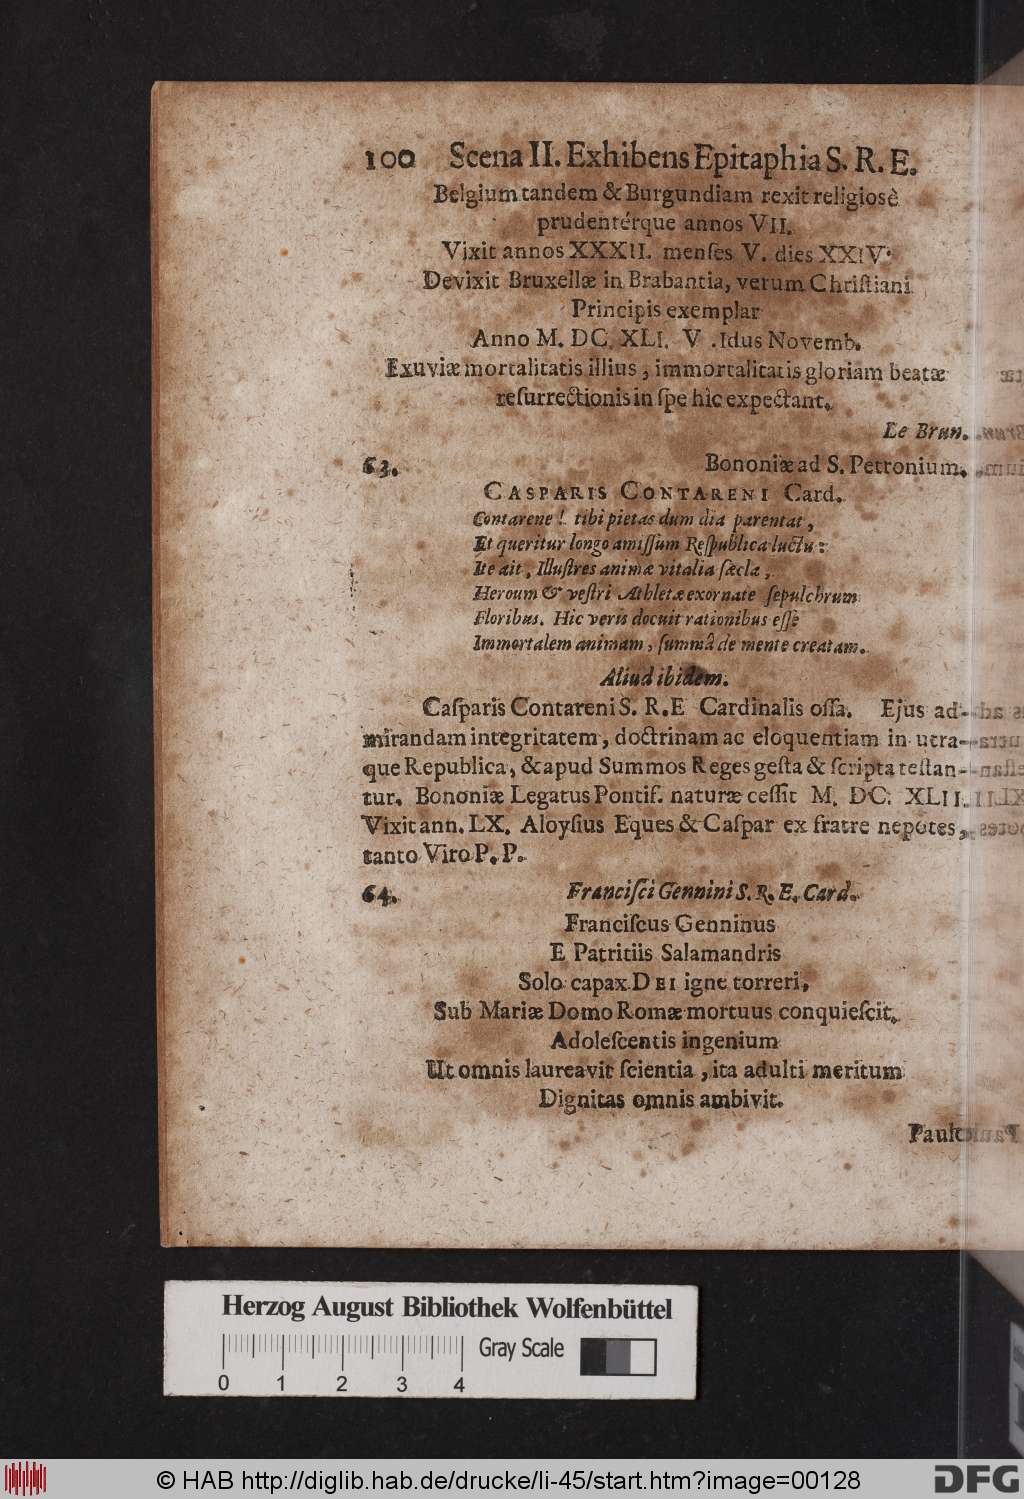 100 Scena II. Exhibens Epitaphia S. R. E.
Belgium tandem & Burgundiam rexit religiosè
prudentérque annos VII.
Vixit annos XXXII. menſes V. dies XXIV.
Devixit Bruxellæ in Brabantia, verum Chriſtiani
Principis exemplar
Anno M. DC. XLI. V .Idus Novemb.
Exuviæ mortalitatis illius, immortalitatis gloriam beatæ
reſurrectionis in ſpe hic expectant.
Le Brun.
63. Bononiæ ad S. Petronium.
CASPARIS CONTARENI Card.
Contarene! tibi pietas dum dia parentat,
Et queritur longo amiſſum Reſpublica luctu:
Ite ait, Illuſtres animæ vitalia ſæcla,
Heroum & veſtri Athletæ exornate ſepulchrum
Floribus. Hic veris docuit rationibus eſſe
Immortalem animam, ſummâ de mente creatam.
Aliud ibidem.
Caſparis Contareni S. R. E Cardinalis oſſa. Ejus ad-
mirandam integritatem, doctrinam ac eloquentiam in utra-
que Republica, & apud Summos Reges geſta & ſcripta teſtan-
tur. Bononiæ Legatus Pontif. naturæ ceſſit M. DC. XLII.
Vixit ann. LX. Aloyſius Eques & Caſpar ex fratre nepotes,
tanto Viro P. P.
64. Franciſci Gennini S. R. E. Card.
Franciſcus Genninus
E Patritiis Salamandris
Solo capax DEI igne torreri,
Sub Mariæ Domo Romæ mortuus conquieſcit.
Adoleſcentis ingenium
Ut omnis laureavit ſcientia, ita adulti meritum
Dignitas omnis ambivit.
Herzog August Bibliothek Wolfenbüttel
Gray Scale
0 1 2 3 4
© HAB http://diglib.hab.de/drucke/li-45/start.htm?image=00128
DFG